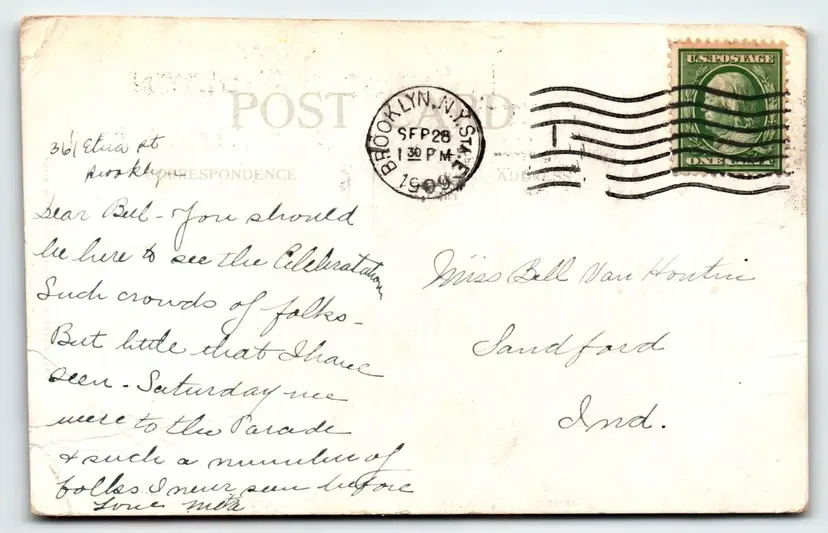 POST CARD
CORRESPONDENCE
ADDRESS
BROOKLYN, N.Y. STA.
SEP 28
1 30 PM
1909
U.S. POSTAGE
ONE CENT
361 Etna st
Brooklyn
Dear Bell - You should
be here to see the Celebration
Such crowds of folks -
But little that I have
seen - Saturday we
were to the Parade
& such a number of
folks I never seen before
Love
Miss Bell Van Houtin
Sandford
Ind.